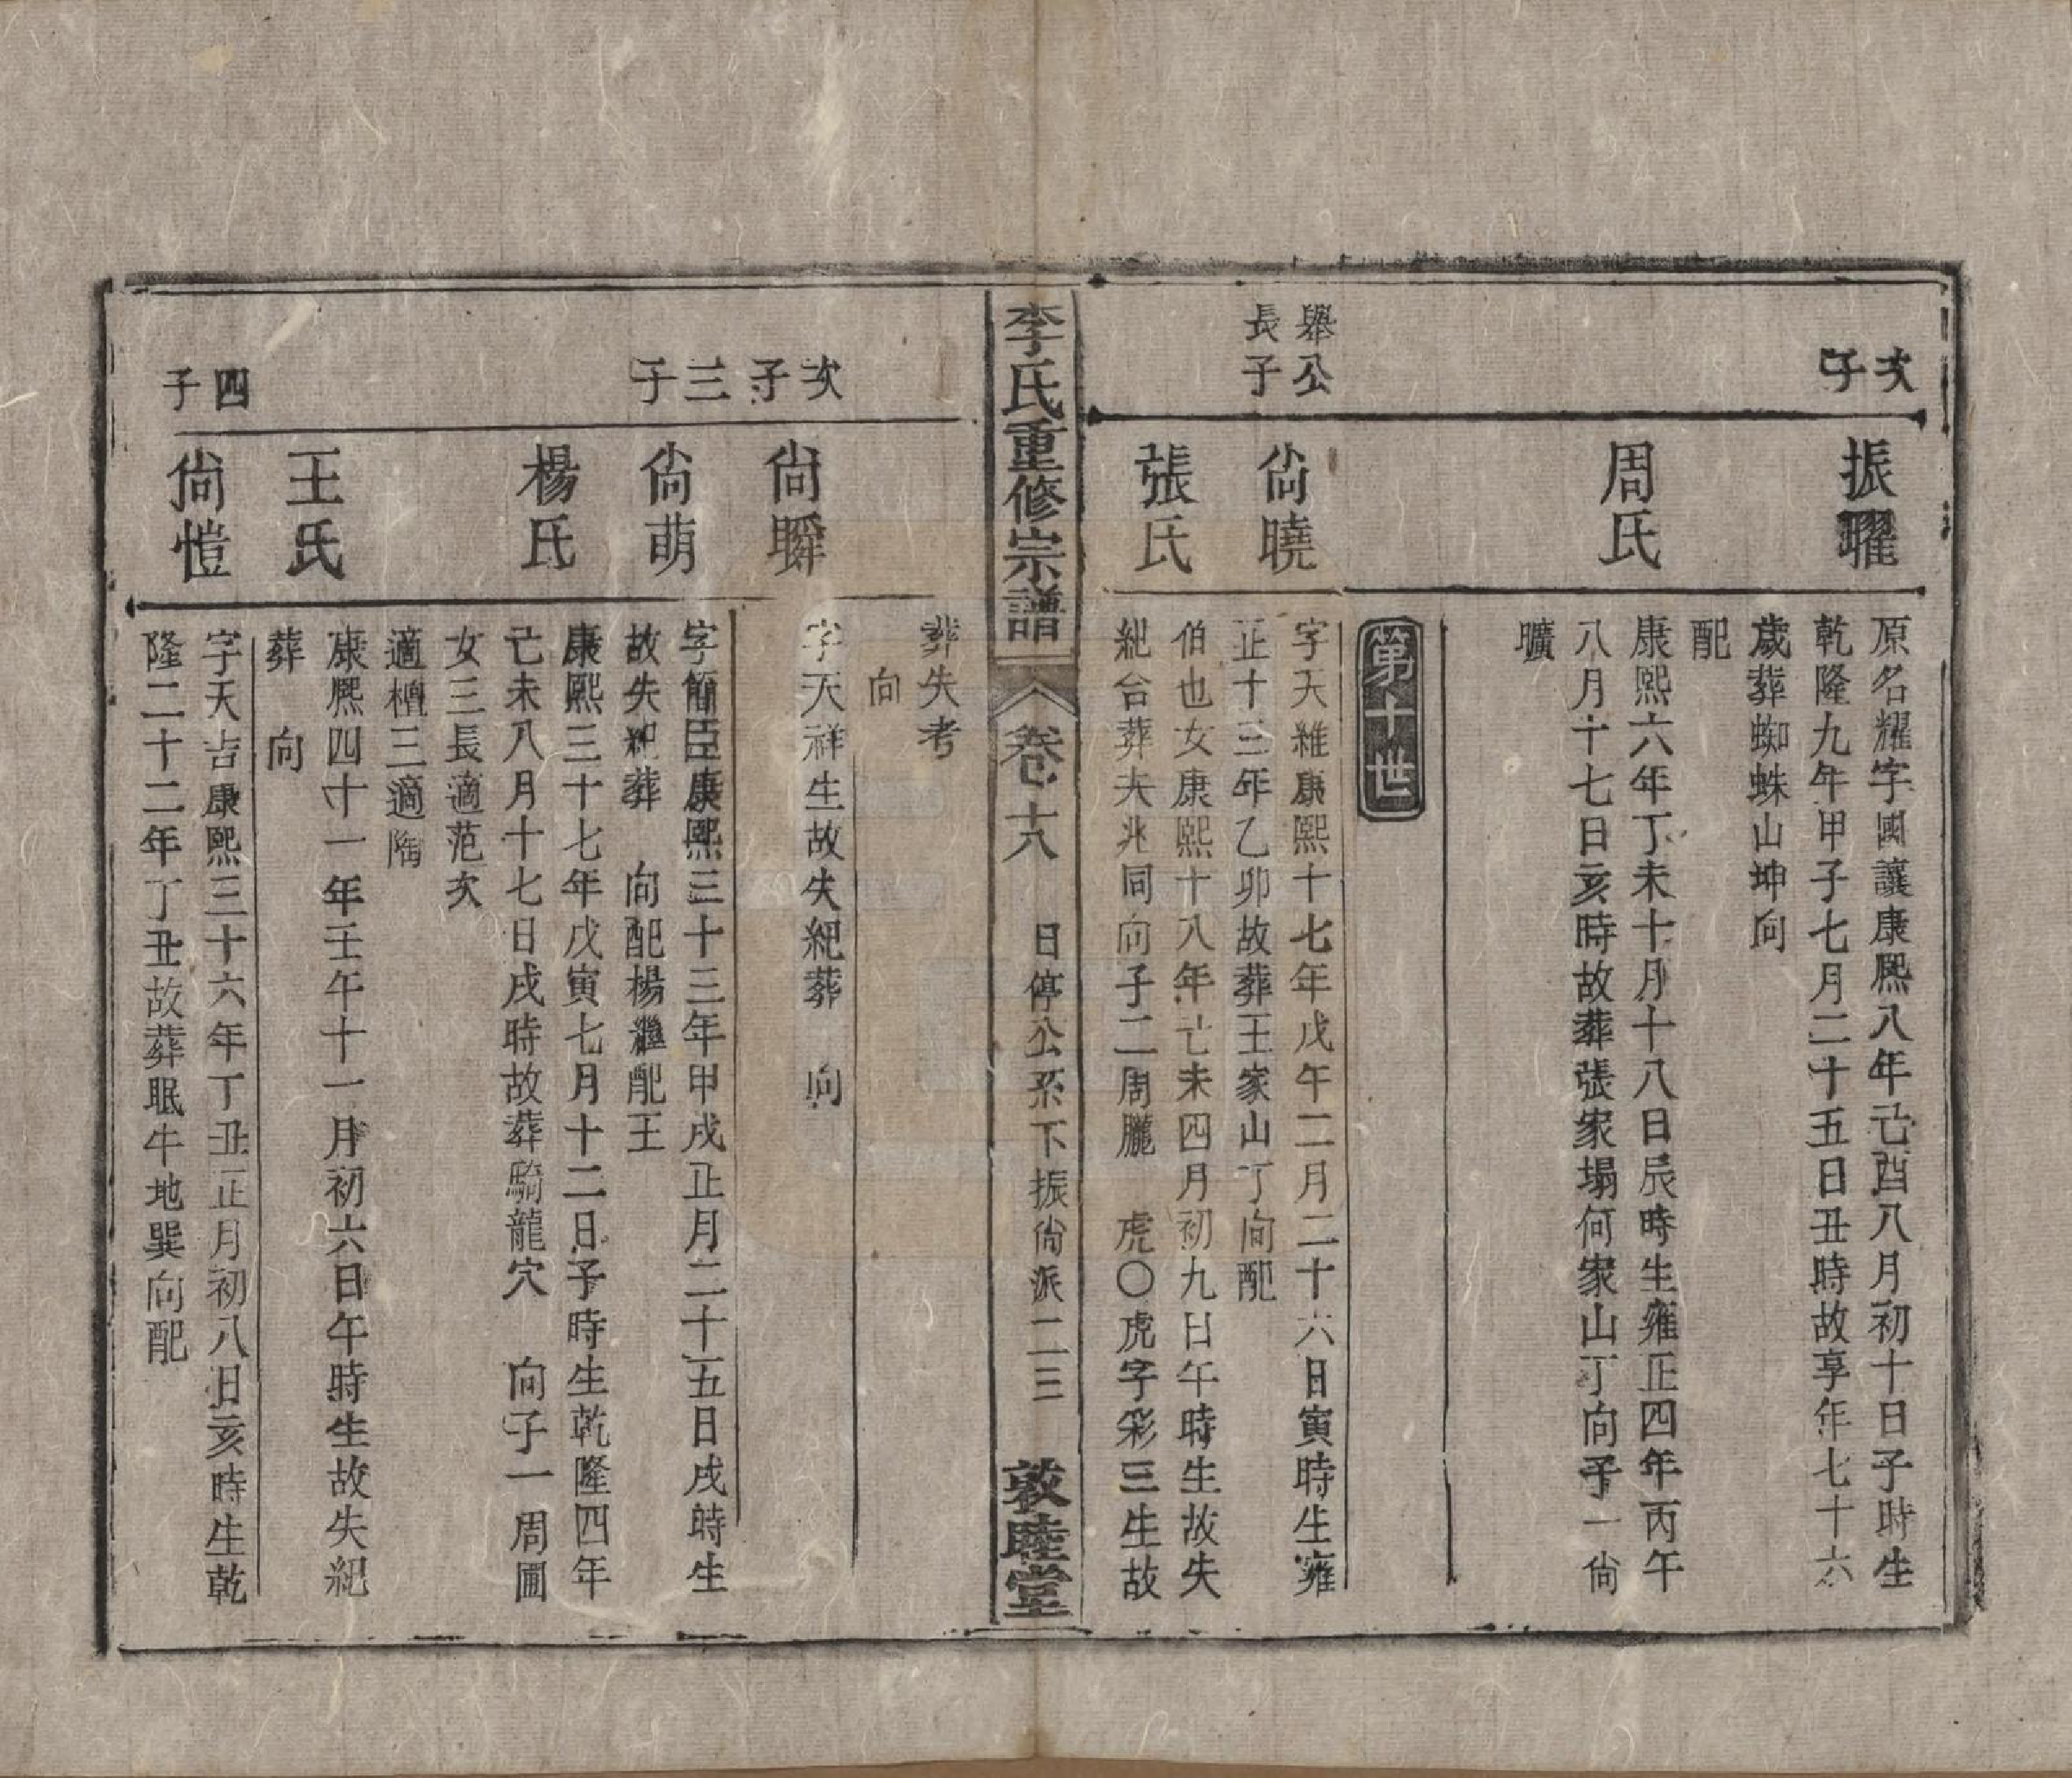 次子
振㬢
原名耀字國讓康熙八年己酉八月初十日子時生
乾隆九年甲子七月二十五日丑時故享年七十六
歲葬蜘蛛山坤向
配
周氏
康熙六年丁未十月十八日辰時生雍正四年丙午
八月十七日亥時故葬張家塌何家山丁向子一尙
曠
第十世
舉公長子
尙曉
字天維康熙十七年戊午二月二十六日寅時生雍
正十三年乙卯故葬王家山丁向配
張氏
伯也女康熙十八年己未四月初九日午時生故失
紀合葬夫兆同向子二周朧 虎〇虎字彩三生故
李氏重修宗譜 卷十八 日停公系下振尙派二三 敦睦堂
葬失考
向
次子
尙瞬
字天祥生故失紀葬 向
三子
尙萌
字簡臣康熙三十三年甲戌正月二十五日戌時生
故失紀葬 向配楊繼配王
楊氏
康熙三十七年戊寅七月十二日子時生乾隆四年
己未八月十七日戌時故葬騎龍穴 向子一周圃
女三長適范次
適檀三適陶
王氏
康熙四十一年壬午十一月初六日午時生故失紀
葬 向
四子
尙愷
字天吉康熙三十六年丁丑正月初八日亥時生乾
隆二十二年丁丑故葬眠牛地巽向配